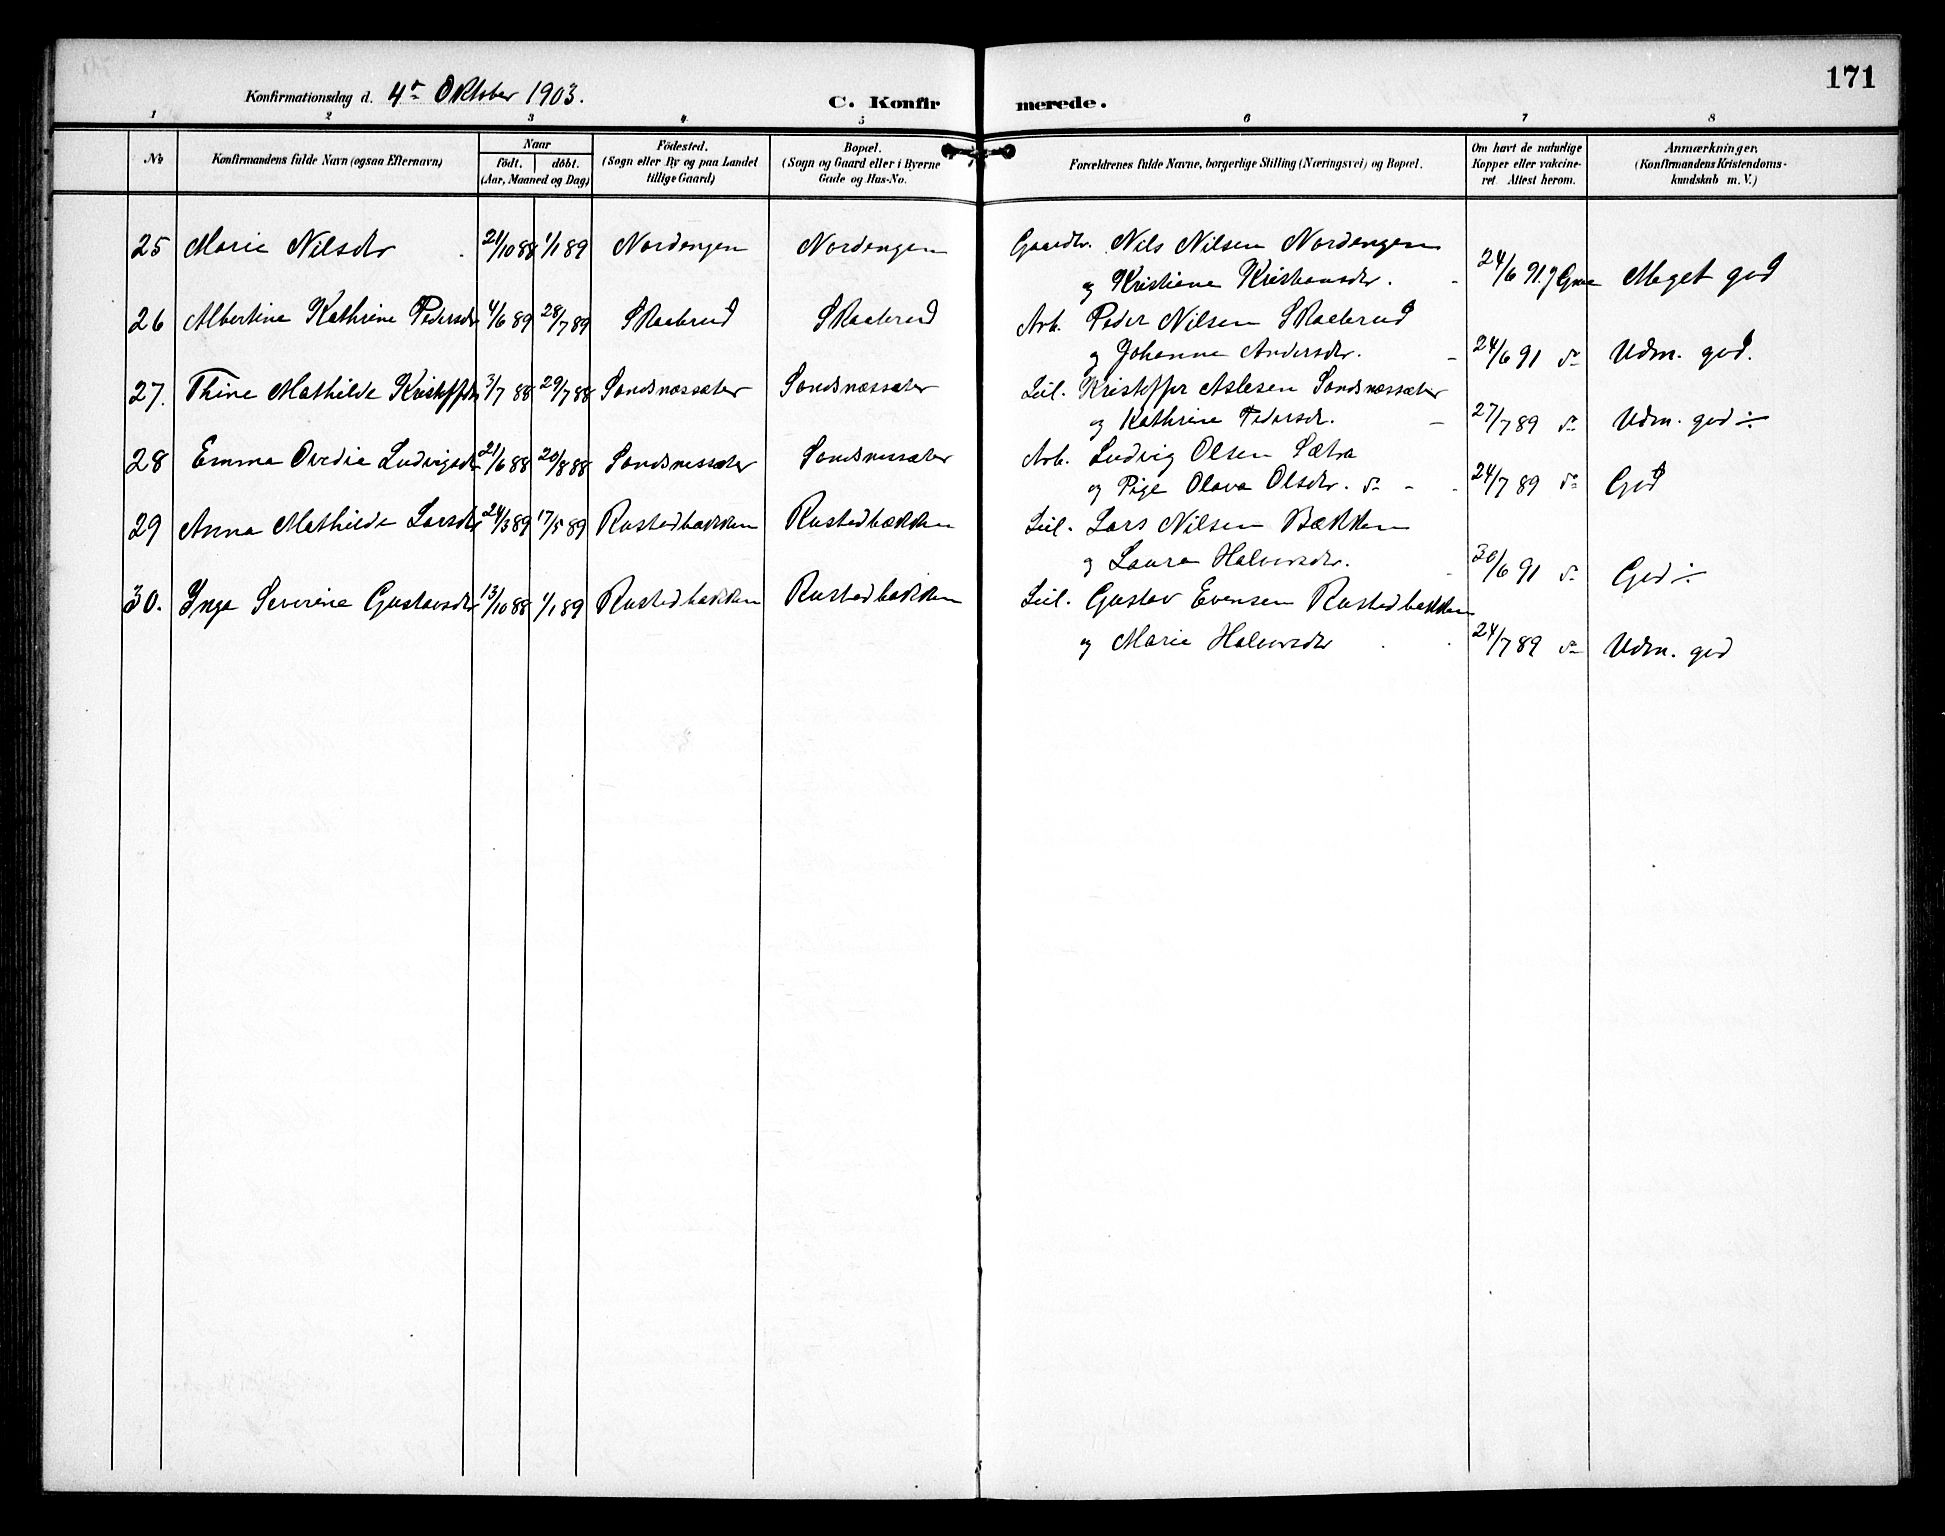 171
Konfirmationsdag d. 4de Oktober 1903.
C. Konfirmerede.
1 2 3 4. 5 6 7 8
No Konfirmandens fulde Navn (ogsaa Efternavn) Naar født. døbt. (Aar, Maaned og Dag) Fødested. (Sogn eller By og paa Landet tillige Gaard) Bopæl. (Sogn og Gaard eller i Byerne Gade og Hus-No. Forældrenes fulde Navne, borgerlige Stilling (Næringsvei) og Bopæl. Om havt de naturlige Kopper eller vakcineret. Attest herom. Anmærkninger. (Konfirmandens Kristendomskundskab m. V.)
25 Marie Nilsdtr 21/10 88 1/1 89 Nordengen Nordengen Gaardbr. Nils Nilsen Nordengen
og Kristiane Kristiansdtr. 24/6 91. Meget god
26 Albertine Kathrine Pedersdtr 4/6 89 28/7 89 Skaebrud Skaebrud Arb. Peder Nilsen Skaebrud
og Johanne Andersdtr. 24/6 91 do Udm. god.
27. Thine Mathilde Kristoffdtr 3/7 88 29/7 88 Sandsnæssæter Sandsnæssæter Leil. Kristoffer Aslesen Sandsnæssæter
og Kathrine Pedersdr. 27/7 89 do Udm. god ÷
28 Emma Ovedie Ludvigsdtr 21/6 88 20/8 88 Sandsnessæter Sandsnessæter Arb. Ludvig Olsen Sætra
og Pige Olava Olsdtr. do 24/7 89 do God
29 Anna Mathilde Larsdtr 24/3 89 17/5 89 Rustadbækken Rustadbækken Leil. Lars Nilsen Bækken
og Laura Halvorsdtr. 30/6 91 do God ÷
30. Inga Severine Gustavsdtr 13/10 88 1/1 89 Rustadbækken Rustadbækken Leil. Gustav Evensen Rustadbækken
og Marie Halvorsdtr 24/7 89 do Udm. god